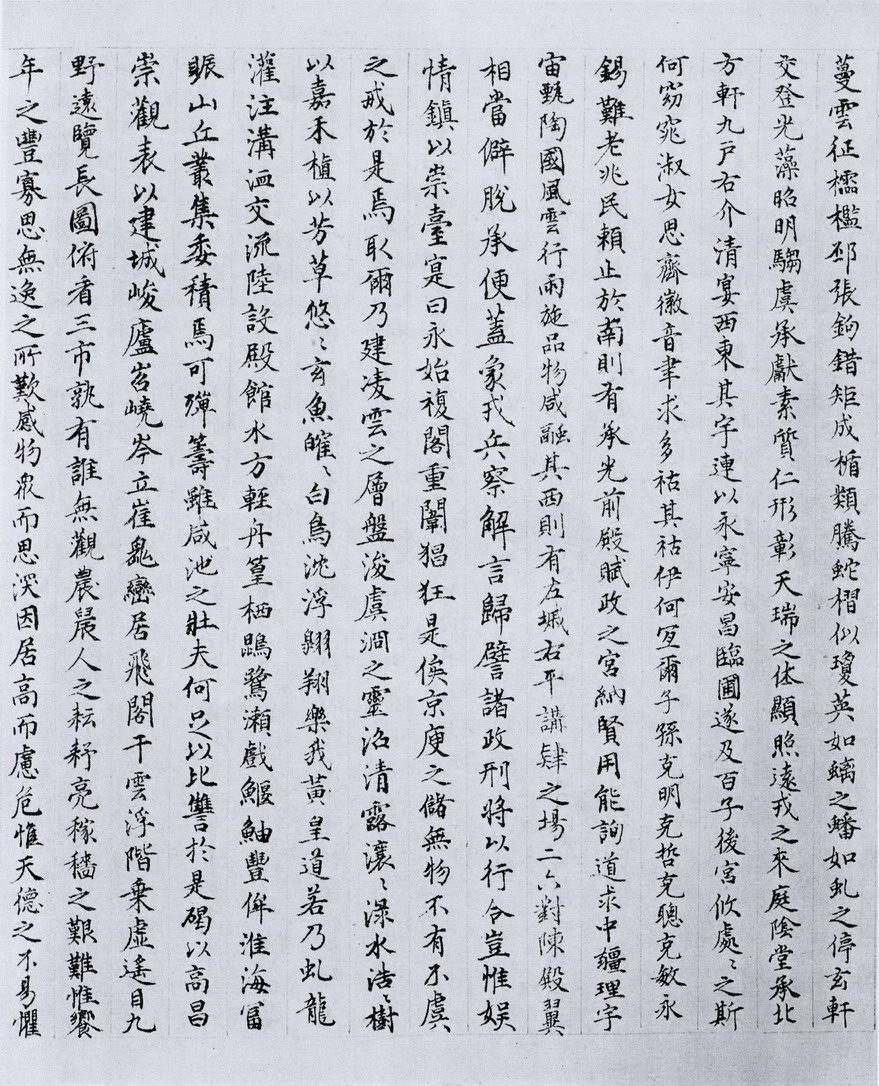 蔓雲征櫺檻邳張鉤錯矩成楯類騰蛇槢似瓊英如螭之蟠如虬之停玄軒
交登光藻昭明騶虞承獻素質仁形彰天瑞之休顯照遠戎之來庭陰堂承北
方軒九戸右介清宴西東其宇連以永寧安昌臨圃遂及百子後宮攸處〻之斯
何窈窕淑女思齊徽音聿求多祜其祜伊何宜爾子孫克明克哲克聰克敏永
錫難老兆民賴止於南則有承光前殿賦政之宮納賢用能詢道求中疆理宇
宙甄陶國風雲行雨施品物咸融其西則有左墄右平講肄之場二六對陳殿翼
相當僻脫承便蓋象戎兵察解言歸譬諸政刑將以行令豈惟娛
情鎮以崇臺寔曰永始複閣重闈猖狂是俟京庾之儲無物不有不虞
之戒於是焉取爾乃建淩雲之層盤浚虞淵之靈沼清露瀼〻渌水浩〻樹
以嘉禾植以芳草悠〻玄魚㿥〻白鳥沈浮翱翔樂我黃皇道若乃虬龍
灌注溝洫交流陸設殿館水方輕舟篁栖鵾鷺瀨戲鰋鮋豐侔淮海冨
賑山丘叢集委積焉可殫籌雖咸池之壯夫何足以比讐於是碣以高昌
崇觀表以建城峻廬岧嶢岑立崔嵬巒居飛閣干雲浮階乗虛遙目九
野遠覽長圖俯看三市孰有誰無觀農晨人之耘耔亮稼穡之艱難惟饗
年之豐寡思無逸之所歎感物衆而思深因居高而慮危惟天德之不易懼